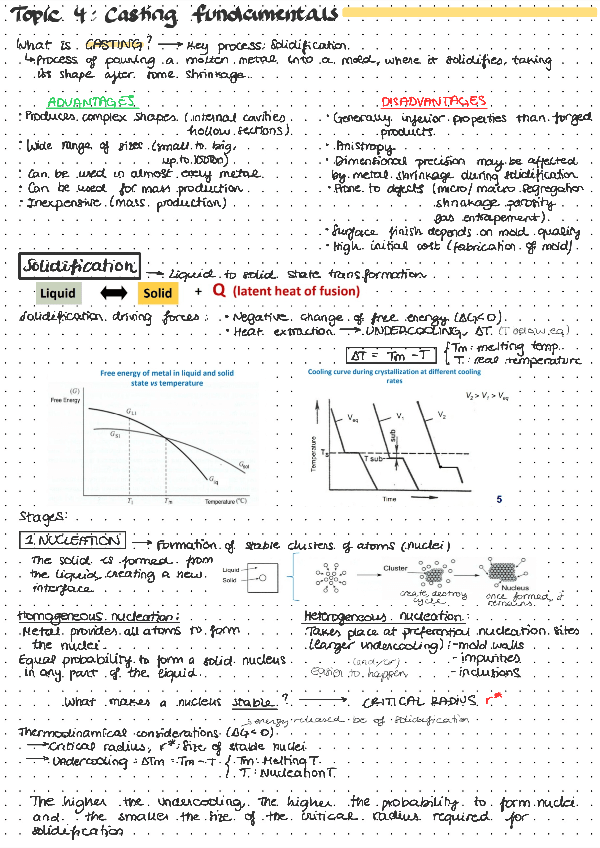 Topic 4: Casting fundamentals
What is CASTING? → Key process: Solidification.
↳ Process of pouring a molten metal into a mold, where it solidifies, taking
its shape after some shrinkage.
ADVANTAGES
· Produces complex shapes (internal cavities,
hollow sections)
· Wide range of sizes (small to big,
up to 100ton)
· Can be used in almost every metal
· Can be used for mass production
· Inexpensive (mass production)
DISADVANTAGES
· Generally inferior properties than forged
products.
· Anistropy
· Dimensional precision may be affected
by metal shrinkage during solidification
· Prone to defects (micro/macro segregation
shrinkage porosity
gas entrapement).
· Surface finish depends on mold quality
· High initial cost (fabrication of mold).
Solidification → Liquid to solid state transformation
Liquid ↔ Solid + Q (latent heat of fusion)
Solidification driving forces: · Negative change of free energy (ΔG<0).
· Heat extraction → UNDERCOOLING, ΔT (T below eq)
ΔT = Tm - T { Tm: melting temp.
T: real temperature
Free energy of metal in liquid and solid
state vs temperature
(G)
Free Energy
G_L1
G_S1
G_sol
G_liq
T1
Tm
Temperature (°C)
Cooling curve during crystallization at different cooling
rates
V₂ > V₁ > Veq
Temperature
Veq
V₁
V₂
Ts
T sub
sub
Time
5
Stages:
1. NUCLEATION → Formation of stable clusters of atoms (nuclei)
The solid is formed from
the liquid, creating a new
interface
Liquid
Solid
Cluster
Nucleus
create, destroy
cycle
once formed, it
remains.
Homogeneous nucleation:
Metal provides all atoms to form
the nuclei.
Equal probability to form a solid nucleus
in any part of the liquid.
Heterogeneous nucleation:
Takes place at preferential nucleation sites
(larger undercooling): - mold walls
- impurities
- inclusions
easier to happen
What makes a nucleus stable? → CRITICAL RADIUS r*
energy released bc of solidification
Thermodinamical considerations (ΔG<0)
→ Critical radius, r*: Size of stable nuclei
→ Undercooling = ΔTm = Tm - T { Tm: Melting T.
T: Nucleation T.
The higher the undercooling, the higher the probability to form nuclei
and the smaller the size of the critical radius required for
solidification